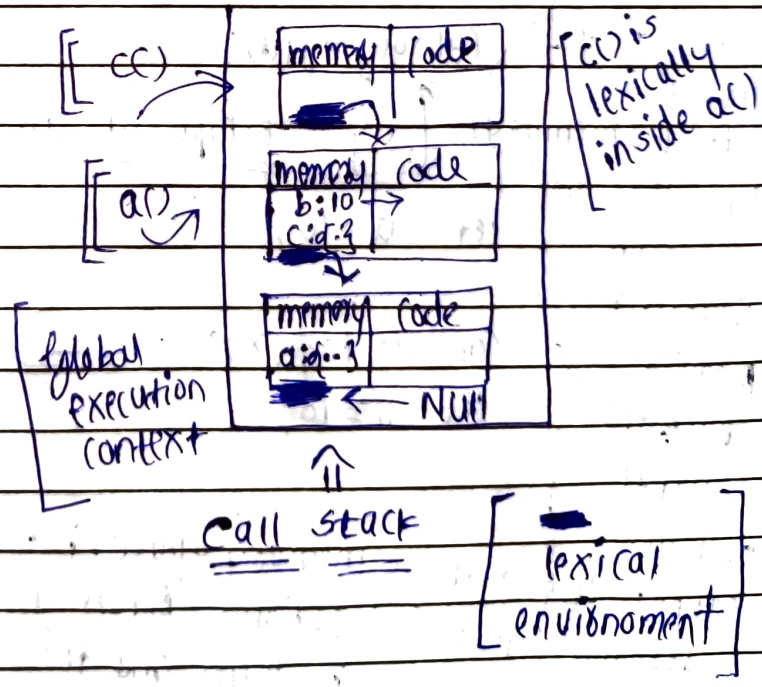 c()
memory code
c() is
lexically
inside a()
a()
memory code
b:10
c:{.}
memory code
a:{..}
Null
Global
execution
context
call stack
lexical
envibnoment